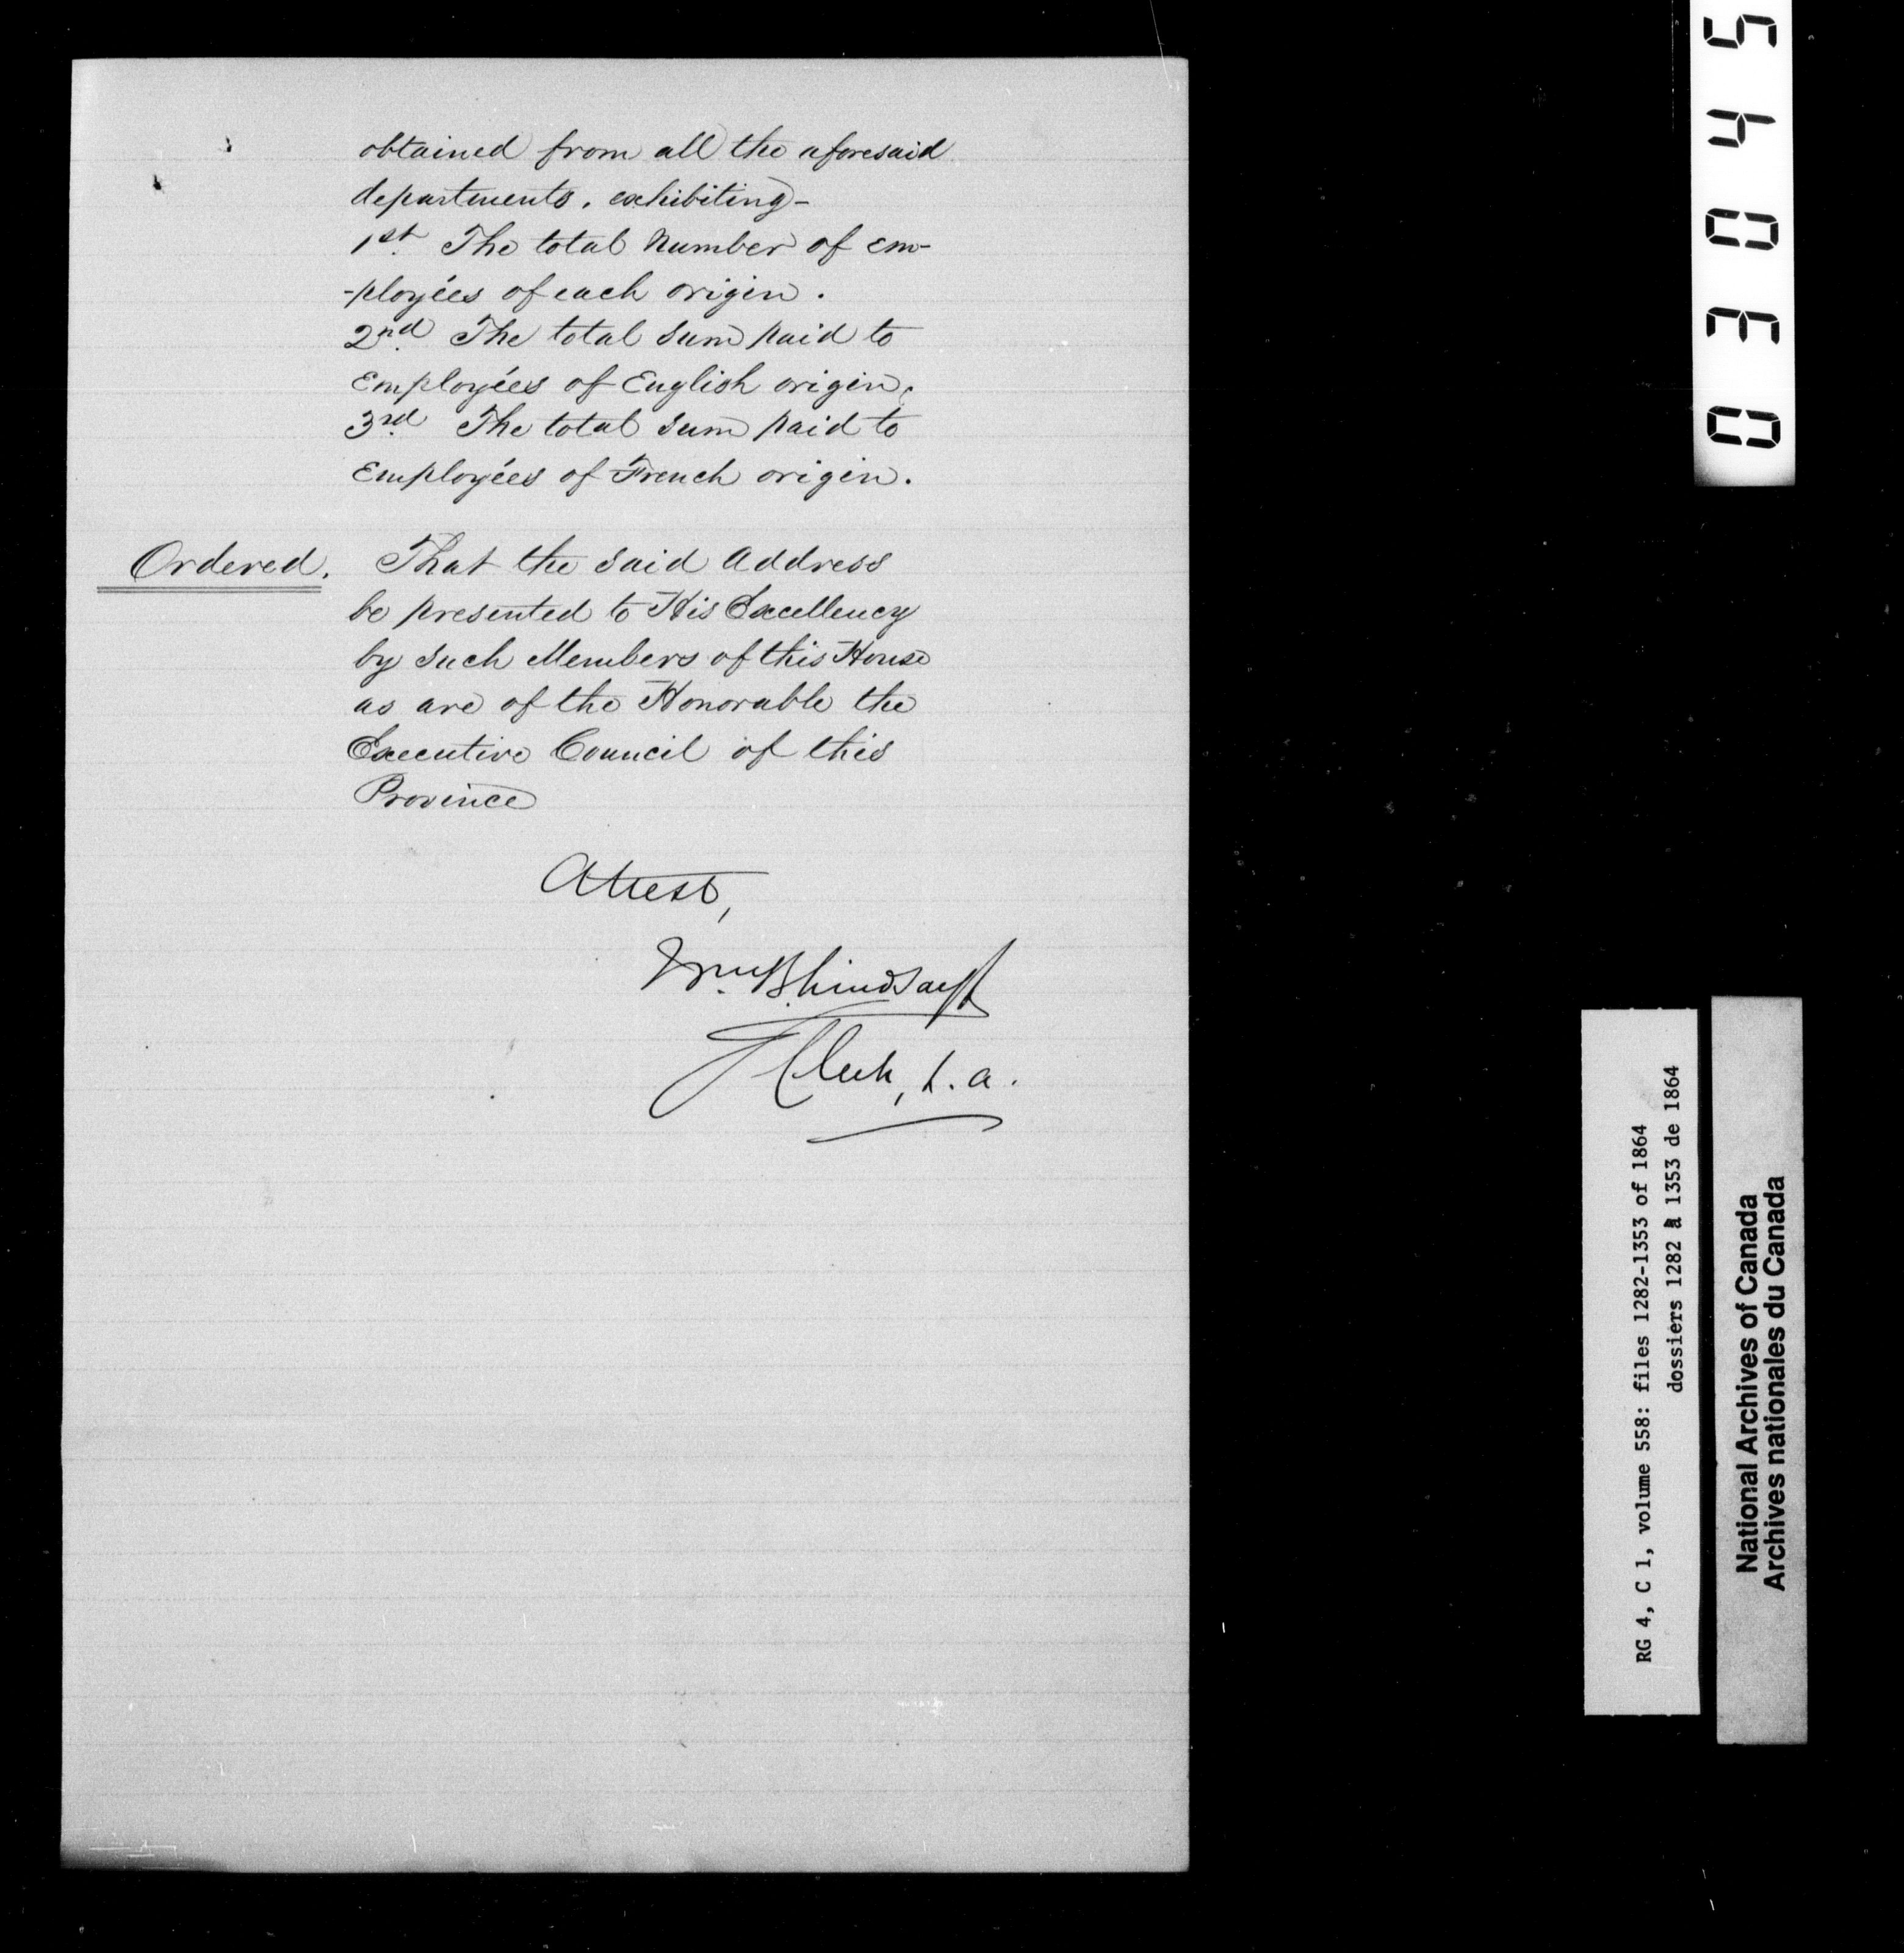 obtained from all the aforesaid
departments, exhibiting-
1st. The total Number of em-
-ployées of each origin.
2nd. The total Sum paid to
Employées of English origin.
3rd. The total Sum paid to
Employées of French origin.
Ordered. That the said Address
be presented to His Excellency
by such Members of this House
as are of the Honorable the
Executive Council of this
Province
Attest,
Wm. B. Lindsay
Clerk, L. A.
03045
RG 4, C 1, volume 558: files 1282-1353 of 1864
dossiers 1282 à 1353 de 1864
National Archives of Canada
Archives nationales du Canada